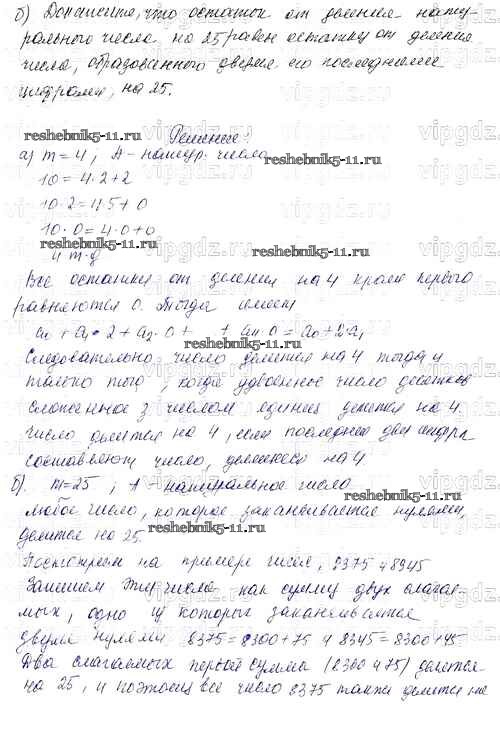 б) Докажите, что остаток от деления нату-
рального числа на 25 равен остатку от деления
числа, образованного двумя его последними
цифрами, на 25.
reshebnik5-11.ru Решение: reshebnik5-11.ru
а) m=4; А - натур. число
10=4·2+2
10·2=4·5+0
10·0=4·0+0
reshebnik5-11.ru
и т.д
reshebnik5-11.ru
Все остатки от деления на 4 кроме первого
равняются 0. Тогда имеем
a₀+a₁·2+a₂·0+ + aₙ·0=a₀+2·a₁
reshebnik5-11.ru
Следовательно число делится на 4 тогда и
только тогда, когда удвоенное число десятков
сложенное з числом единиц делится на 4.
Число делится на 4, если последнее две цифры
составляют число, делящееся на 4
б). m=25; А - натуральное число
reshebnik5-11.ru
любое число, которое заканчивается нулями,
делится на 25.
reshebnik5-11.ru
Посмотрим на примере чисел, 8375 и 8345
Запишем эти числа как сумму двух слагае-
мых, одно из которых заканчивается
двумя нулями 8375=8300+75 и 8345=8300+45
Два слагаемых первой суммы (8300 и 75) делятся
на 25, и поэтому все число 8375 также делится на
vipgdz.ru